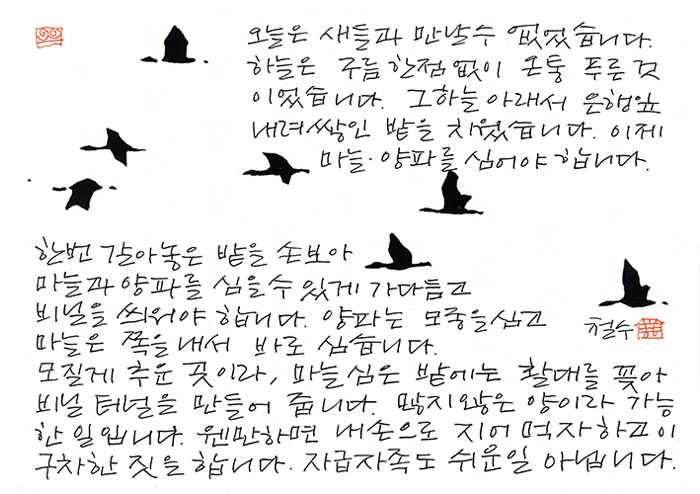 오늘은 새들과 만날수 없었습니다.
하늘은 구름 한점 없이 온통 푸른 것
이었습니다. 그하늘 아래서 은행잎
내려쌓인 밭을 치웠습니다. 이제
마늘·양파를 심어야 합니다.
한번 갈아놓은 밭을 손보아
마늘과 양파를 심을수 있게 가다듬고
비닐을 씌워야 합니다. 양파는 모종을심고
마늘은 쪽을내서 바로 심습니다.
모질게 추운 곳이라, 마늘심은 밭에는 활대를 꽂아
비닐 터널을 만들어 줍니다. 많지않은 양이라 가능
한 일입니다. 웬만하면 내손으로 지어 먹자하고 이
구차한 짓을 합니다. 자급자족도 쉬운일 아닙니다.
철수